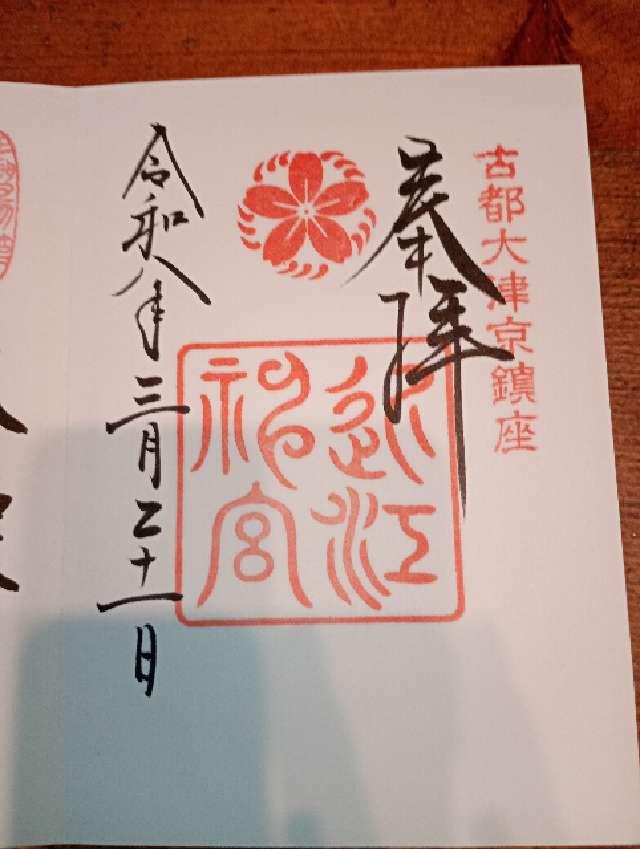 古都大津京鎮座
奉拝
近江
神宮
令和八年三月二十一日